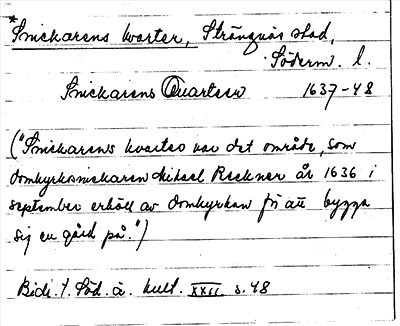 *Snickarens kvarter, Strängnäs stad,
Söderm. l.
Snickarens Quarteer 1637-48
("Snickarens kvarter var det område, som
domkyrkosnickaren Mikael Reckner år 1636 i
september erhöll av domkyrkan för att bygga
sig en gård på.")
Bidr. t. Söd. ä. kult. XXII s. 48